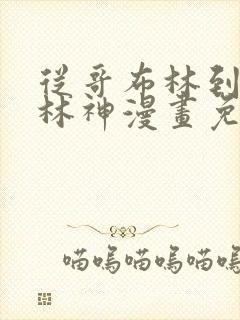 從哥布林到
林神漫畫免
喵嗚喵嗚喵嗚